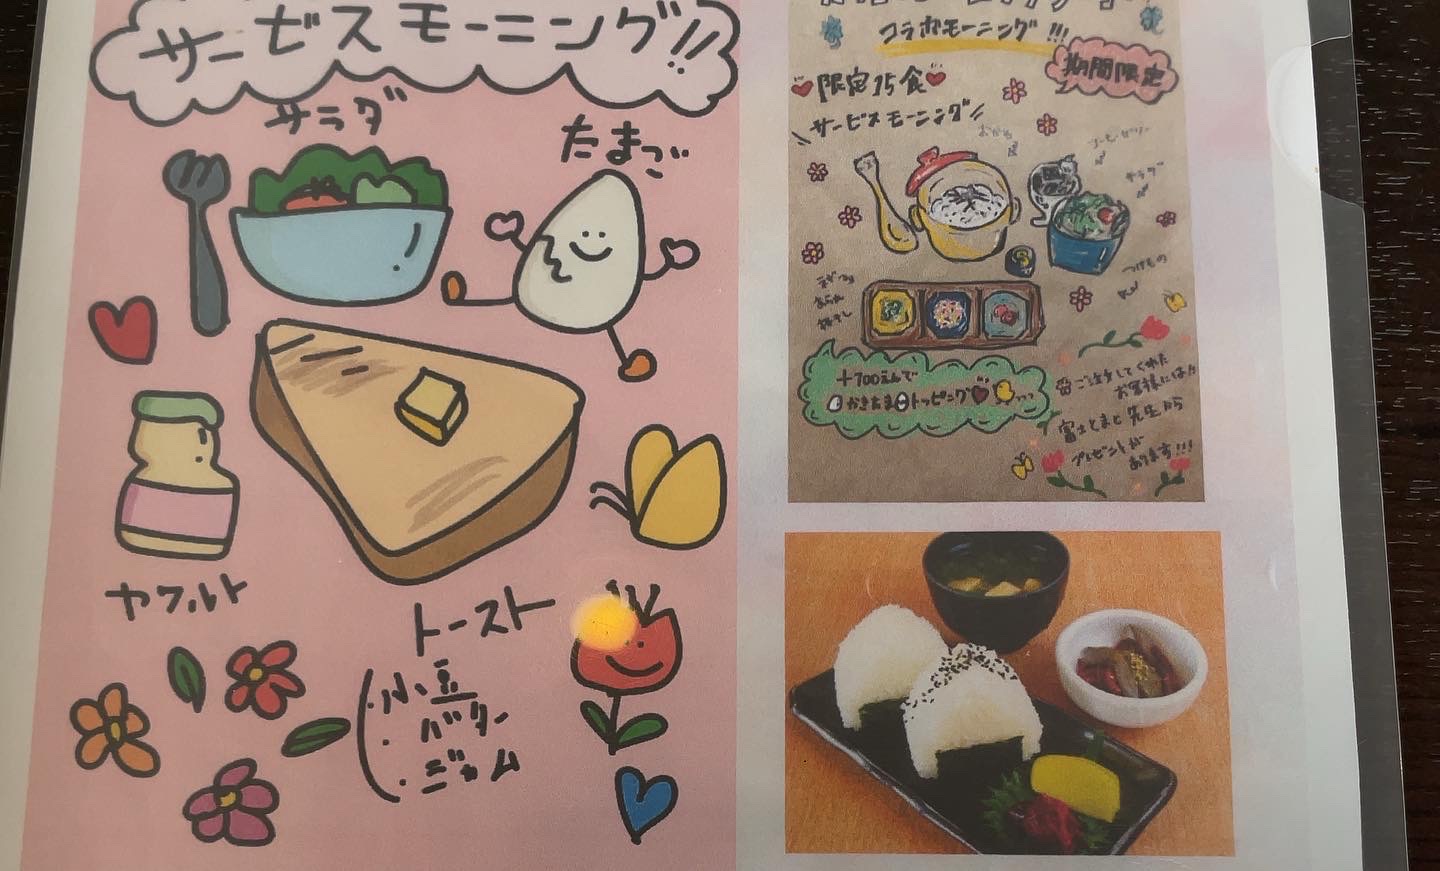 サービスモーニング!!
サラダ
たまご
ヤクルト
トースト
・小豆
・バター
・ジャム
コラボモーニング!!!
期間限定
限定15食
サービスモーニング
おかゆ
コーヒーゼリー
サラダ
つけもの
+100えんで
かきたまトッピング
ご注文してくれた
お客様には!!
富士とまと先生から
プレゼントが
あります!!!